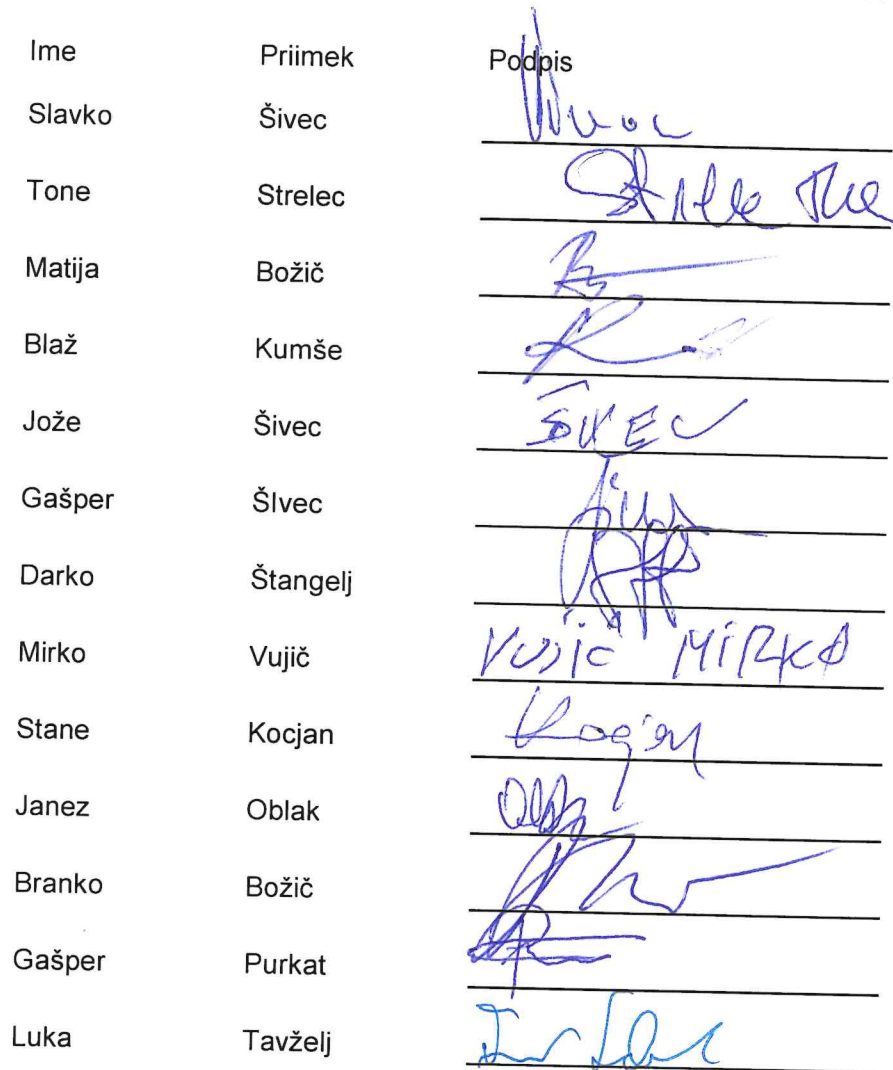 Ime Priimek Podpis
Slavko Šivec
Tone Strelec
Matija Božič
Blaž Kumše
Jože Šivec ŠIVEC
Gašper Šlvec
Darko Štangelj
Mirko Vujič VUJIČ MIRKO
Stane Kocjan Kocjan
Janez Oblak
Branko Božič
Gašper Purkat
Luka Tavželj